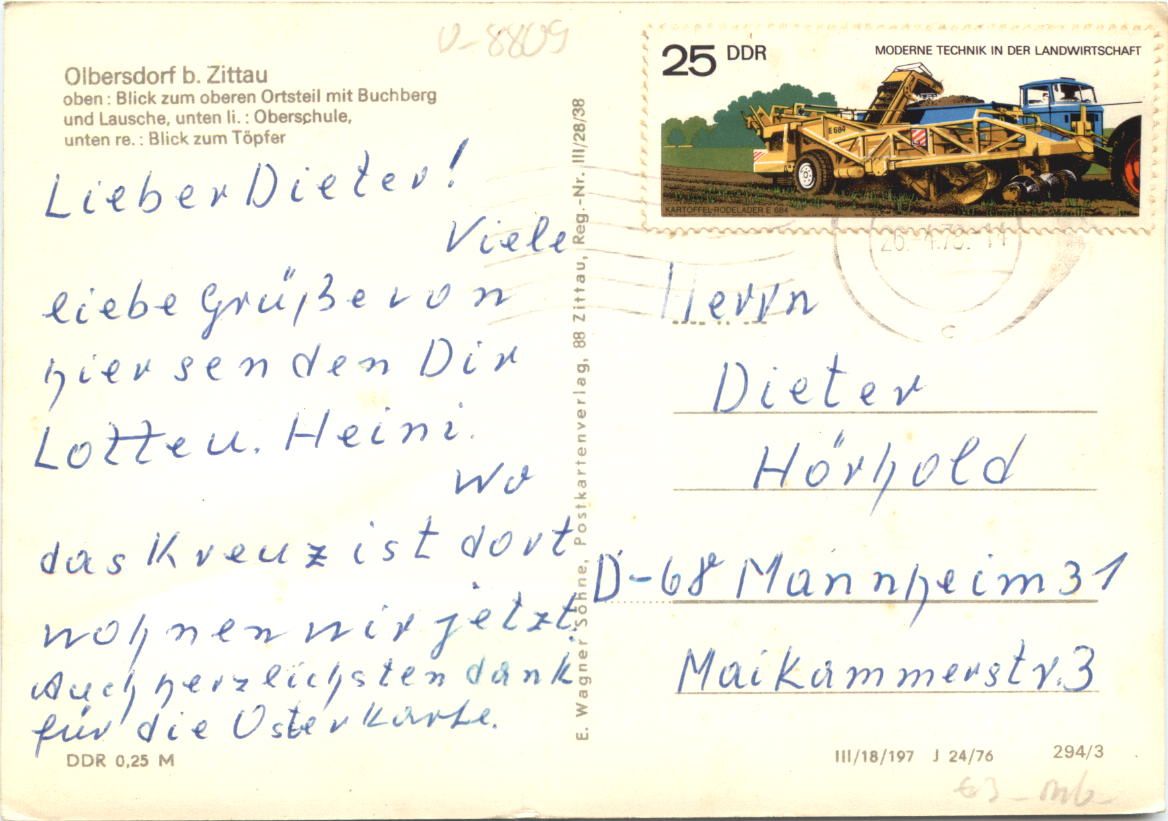 V-8809
Olbersdorf b. Zittau
oben : Blick zum oberen Ortsteil mit Buchberg
und Lausche, unten li. : Oberschule,
unten re. : Blick zum Töpfer
Lieber Dieter!
Viele
liebe Grüße von
hier senden Dir
Lotte u. Heini.
Wo
das Kreuz ist dort
wohnen wir jetzt.
Auch herzlichsten dank
für die Osterkarte.
DDR 0,25 M
E. Wagner Söhne, Postkartenverlag, 88 Zittau, Reg.-Nr. III/28/38
25 DDR
MODERNE TECHNIK IN DER LANDWIRTSCHAFT
E 684
KARTOFFEL-RODELADER E 684
26.-4.78.-11
c
Herrn
Dieter
Hörhold
D-68 Mannheim 31
Maikammerstr. 3
III/18/197 J 24/76
294/3